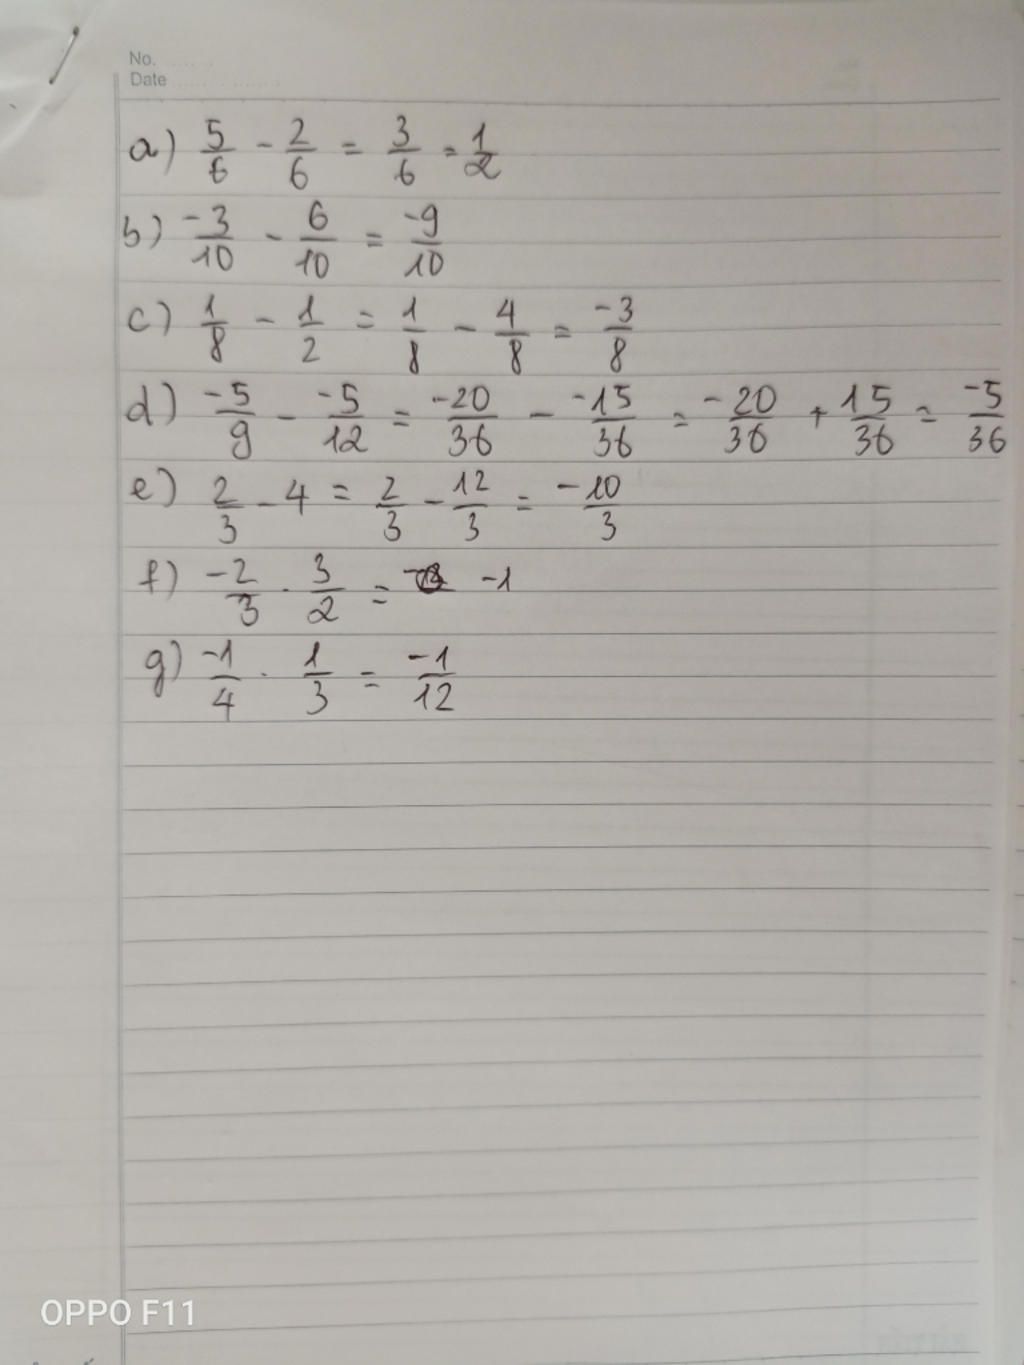 No.
Date
a) 5/6 - 2/6 = 3/6 = 1/2
b) -3/10 - 6/10 = -9/10
c) 1/8 - 1/2 = 1/8 - 4/8 = -3/8
d) -5/9 - -5/12 = -20/36 - -15/36 = -20/36 + 15/36 = -5/36
e) 2/3 - 4 = 2/3 - 12/3 = -10/3
f) -2/3 . 3/2 = -1
g) -1/4 . 1/3 = -1/12
OPPO F11